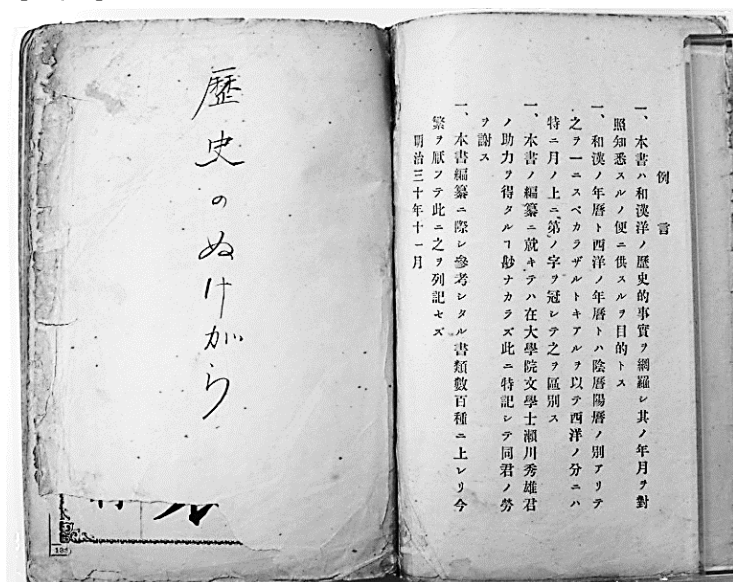 例言
一、本書ハ和漢洋ノ歷史的事實ヲ網羅シ其ノ年月ヲ對
照知悉スルノ便ニ供スルヲ目的トス
一、和漢ノ年曆ト西洋ノ年曆トハ陰曆陽曆ノ別アリテ
之ヲ一ニスベカラザルトキアルヲ以テ西洋ノ分ニハ
特ニ月ノ上ニ第ノ字ヲ冠シテ之ヲ區別ス
一、本書ノ編纂ニ就キテハ在大學院文學士瀨川秀雄君
ノ助力ヲ得タルヿ尠ナカラズ此ニ特記シテ同君ノ勞
ヲ謝ス
一、本書編纂ニ際シ參考シタル書類數百種ニ上レリ今
繁ヲ厭フテ此ニ之ヲ列記セズ
明治三十年十一月
歴史のぬけがら